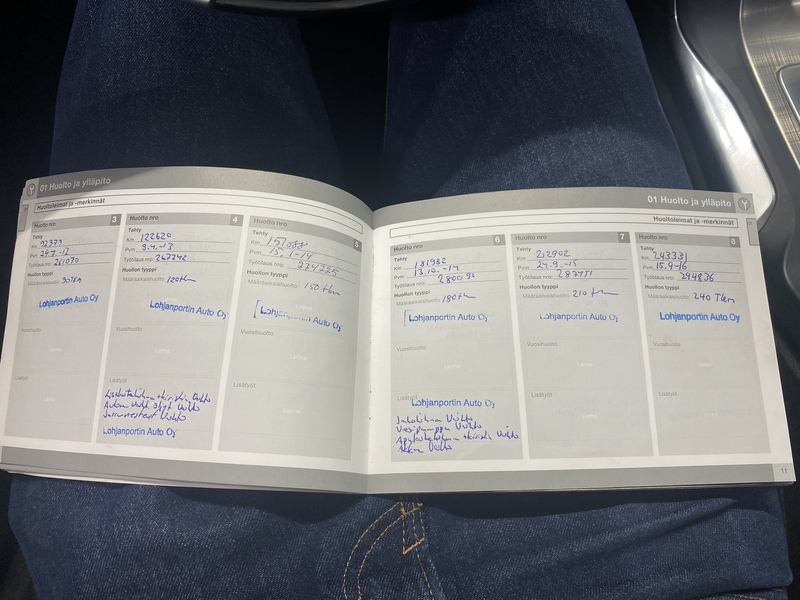 01 Huolto ja ylläpito
Huoltoleimat ja -merkinnät
Huolto nro 3
Tehty
Km 92379
Pvm 24.7-12
Työtilaus nro: 261070
Huollon tyyppi
Määräaikaishuolto 90Tkm
Lohjanportin Auto Oy
Vuosihuolto
Leima
Lisätyöt
Leima
Huolto nro 4
Tehty
Km 122620
Pvm 9.4.-13
Työtilaus nro 267742
Huollon tyyppi
Määräaikaishuolto 120tkm
Lohjanportin Auto Oy
Vuosihuolto
Leima
Lisätyöt
Vaihto
Vaihto
Jarrunesteet Vaihto
Lohjanportin Auto Oy
Huolto nro 5
Tehty
Km
Pvm 15.1-14
Työtilaus nro: 274225
Huollon tyyppi
Määräaikaishuolto 150 tkm
Lohjanportin Auto Oy
Vuosihuolto
Leima
Lisätyöt
Leima
01 Huolto ja ylläpito
Huoltoleimat ja -merkinnät
Huolto nro 6
Tehty
Km 181982
Pvm 13.10.-14
Työtilaus nro:
Huollon tyyppi
Määräaikaishuolto 180tkm
Lohjanportin Auto Oy
Vuosihuolto
Lisätyöt
Lohjanportin Auto Oy
Jakohihnan Vaihto
Vesipumppu Vaihto
Vaihto
Vaihto
Huolto nro 7
Tehty
Km 212902
Pvm 24.9.-15
Työtilaus nro: 287751
Huollon tyyppi
Määräaikaishuolto 210 tkm
Lohjanportin Auto Oy
Vuosihuolto
Leima
Lisätyöt
Leima
Huolto nro 8
Tehty
Km 243331
Pvm 15.9-16
Työtilaus nro: 294836
Huollon tyyppi
Määräaikaishuolto 240 Tkm
Lohjanportin Auto Oy
Vuosihuolto
Leima
Lisätyöt
Leima
11